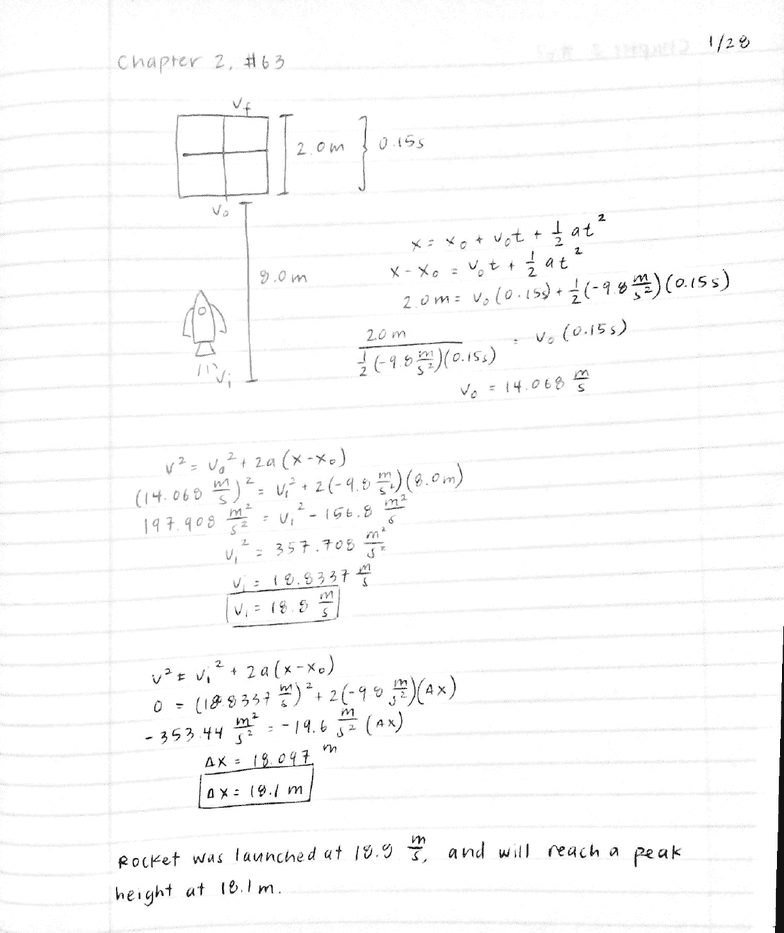 1/28
Chapter 2, #63
Vf
2.0m } 0.15s
V₀
8.0m
Vᵢ
x = x₀ + v₀t + ½ at²
x - x₀ = v₀t + ½ at²
2.0m = v₀(0.15s) + ½(-9.8 m/s²)(0.15s)
2.0m / ½(-9.8 m/s²)(0.15s) = v₀(0.15s)
v₀ = 14.068 m/s
v² = v₀² + 2a(x-x₀)
(14.068 m/s)² = vᵢ² + 2(-9.8 m/s²)(8.0m)
197.908 m²/s² = vᵢ² - 156.8 m²/s
vᵢ² = 357.708 m²/s²
vᵢ = 18.8337 m/s
vᵢ = 18.8 m/s
v² = vᵢ² + 2a(x-x₀)
0 = (18.8337 m/s)² + 2(-9.8 m/s²)(Δx)
-353.44 m²/s² = -19.6 m/s² (Δx)
Δx = 18.097 m
Δx = 18.1 m
Rocket was launched at 18.8 m/s, and will reach a peak
height at 18.1m.